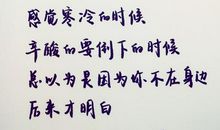 感觉寒冷的时候
辛酸的要倒下的时候
总以为是因为你不在身边
后来才明白